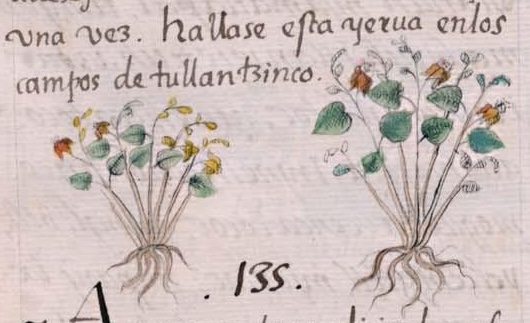 vna vez. hallase esta yerua enlos
campos de tullantzinco.
.135.
A